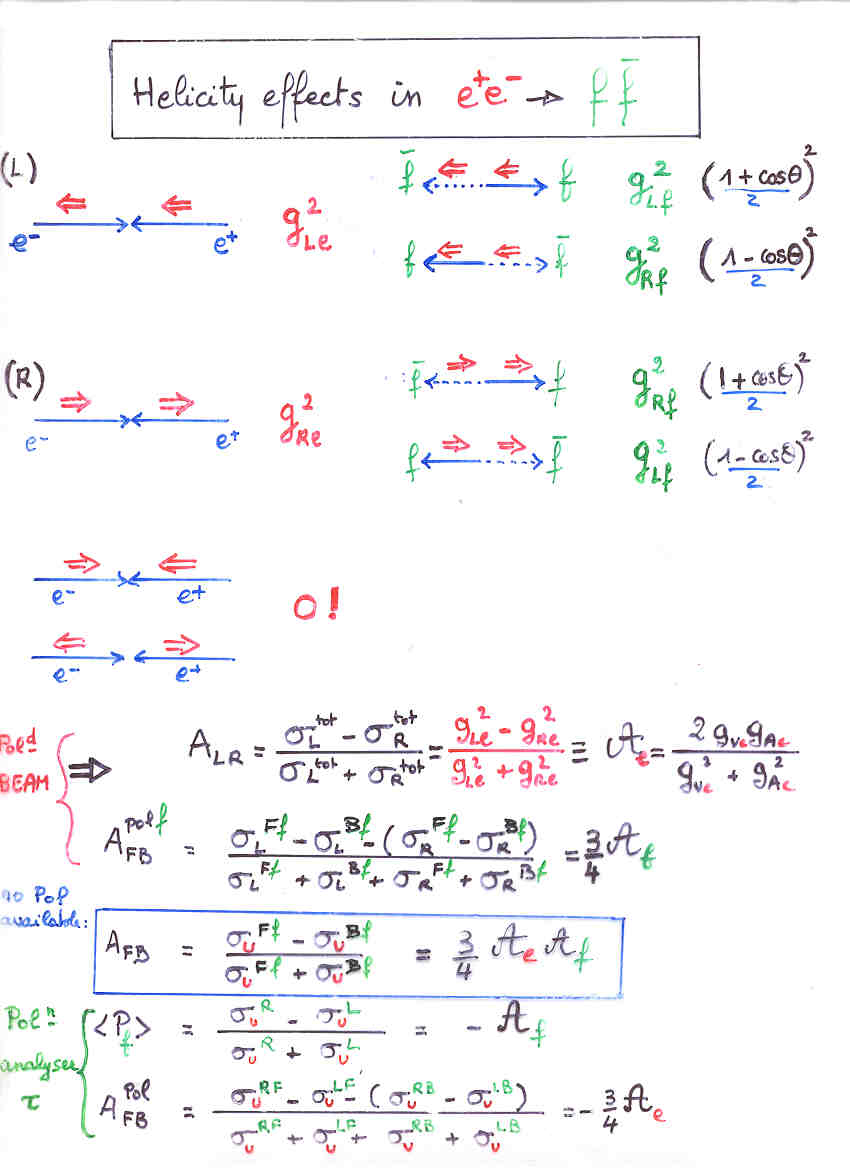 Helicity effects in e⁺e⁻ → f f̄
(L)
e⁻ e⁺ g²_Le
f̄ f g²_Lf ((1+cosθ)/2)²
f f̄ g²_Rf ((1-cosθ)/2)²
(R)
e⁻ e⁺ g²_Re
f̄ f g²_Rf ((1+cosθ)/2)²
f f̄ g²_Lf ((1-cosθ)/2)²
e⁻ e⁺
0!
e⁻ e⁺
Pol^d BEAM ⇒ A_LR = (σ_L^tot - σ_R^tot)/(σ_L^tot + σ_R^tot) = (g²_Le - g²_Re)/(g²_Le + g²_Re) ≡ 𝒜_e = 2 g_Ve g_Ae/(g_Ve² + g_Ae²)
A_FB^pol f = (σ_L^Ff - σ_L^Bf - (σ_R^Ff - σ_R^Bf))/(σ_L^Ff + σ_L^Bf + σ_R^Ff + σ_R^Bf) = 3/4 𝒜_f
no Pol available:
A_FB = (σ_U^Ff - σ_U^Bf)/(σ_U^Ff + σ_U^Bf) = 3/4 𝒜_e 𝒜_f
Pol^n analyser τ
<P_f> = (σ_U^R - σ_U^L)/(σ_U^R + σ_U^L) = - 𝒜_f
A_FB^Pol = (σ_U^RF - σ_U^LF - (σ_U^RB - σ_U^LB))/(σ_U^RF + σ_U^LF + σ_U^RB + σ_U^LB) = - 3/4 𝒜_e